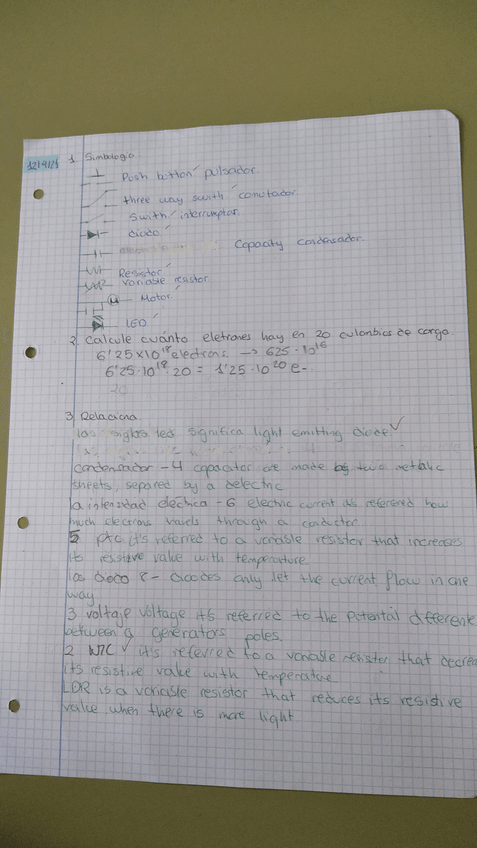 12/4/21
1. Simbologia.
Push button pulsador.
three way swith conmutador.
Swith interruptor.
diodo
Capacity condensador.
Resistor
variable resistor
M Motor
LED
2. Calcule cuánto eletrones hay en 20 culombios de carga
6'25x10¹⁸ electrons. → 625·10¹⁶
6'25·10¹⁸·20 = 1'25·10²⁰ e-
20
3 Relaciona.
las siglas led significa light emitting diode ✓
condensador - 4 capacitor are made by two metalic
sheets, separed by a delectric
la intensidad electrica - 6 electric current it's refererd how
much electrons travels through a conductor
5 ptc it's referred to a variable resistor that increases
its resistive value with temperature.
los diodo 8 - diodes only let the current flow in one
way
3 voltaje voltage it's referred to the potential difference
between a generators poles.
2 NTC ✓ it's referred to a variable resistor that decrea
its resistive value with temperature
LDR is a variable resistor that reduces its resistive
value when there is more light